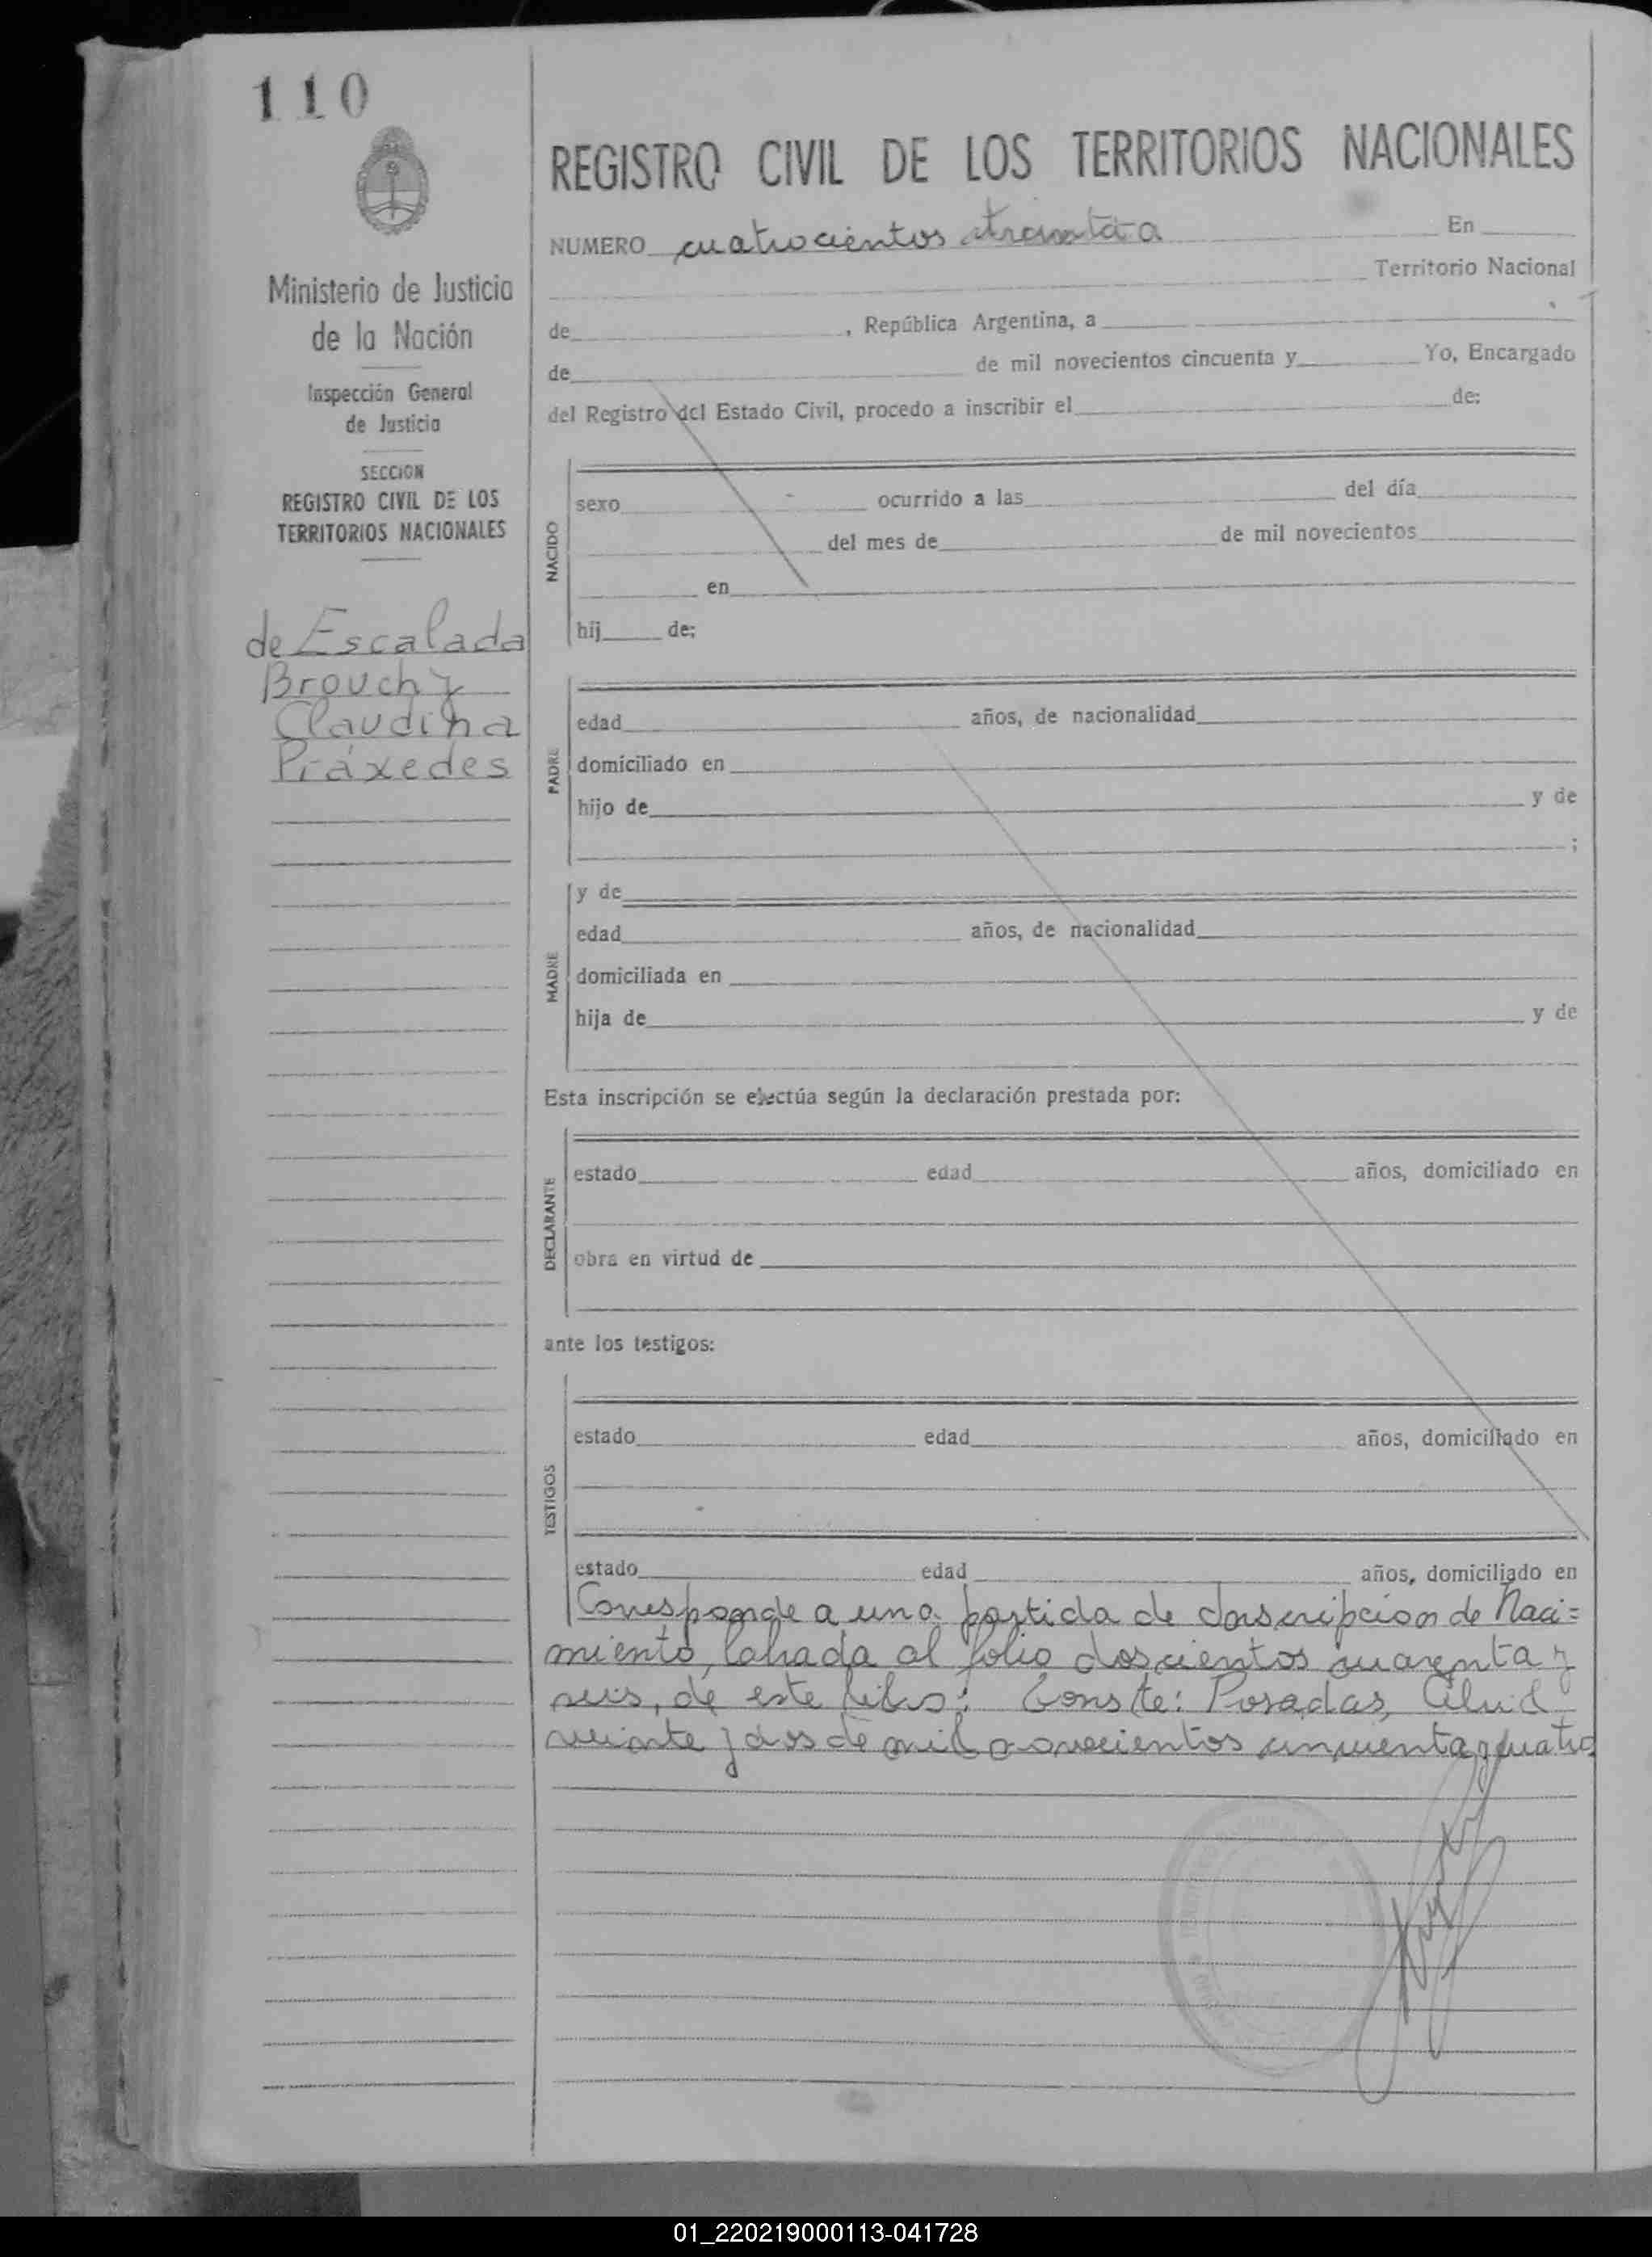 110
REGISTRO CIVIL DE LOS TERRITORIOS NACIONALES
NUMERO cuatrocientos treinta En
Territorio Nacional
de , República Argentina, a
de de mil novecientos cincuenta y Yo, Encargado
del Registro del Estado Civil, procedo a inscribir el de:
Ministerio de Justicia
de la Nación
Inspección General
de Justicia
SECCION
REGISTRO CIVIL DE LOS
TERRITORIOS NACIONALES
de Escalada
Brouchy
Claudina
Práxedes
NACIDO
sexo ocurrido a las del día
del mes de de mil novecientos
en
hij de:
PADRE
edad años, de nacionalidad
domiciliado en
hijo de y de
;
MADRE
y de
edad años, de nacionalidad
domiciliada en
hija de y de
Esta inscripción se efectúa según la declaración prestada por:
DECLARANTE
estado edad años, domiciliado en
obra en virtud de
ante los testigos:
TESTIGOS
estado edad años, domiciliado en
estado edad años, domiciliado en
Corresponde a una partida de Inscripcion de Naci=
miento, labrada al folio doscientos cuarenta y
seis, de este libro: Conste: Posadas, Abril
veinte y dos de mil novecientos cincuenta y cuatro
01_220219000113-041728